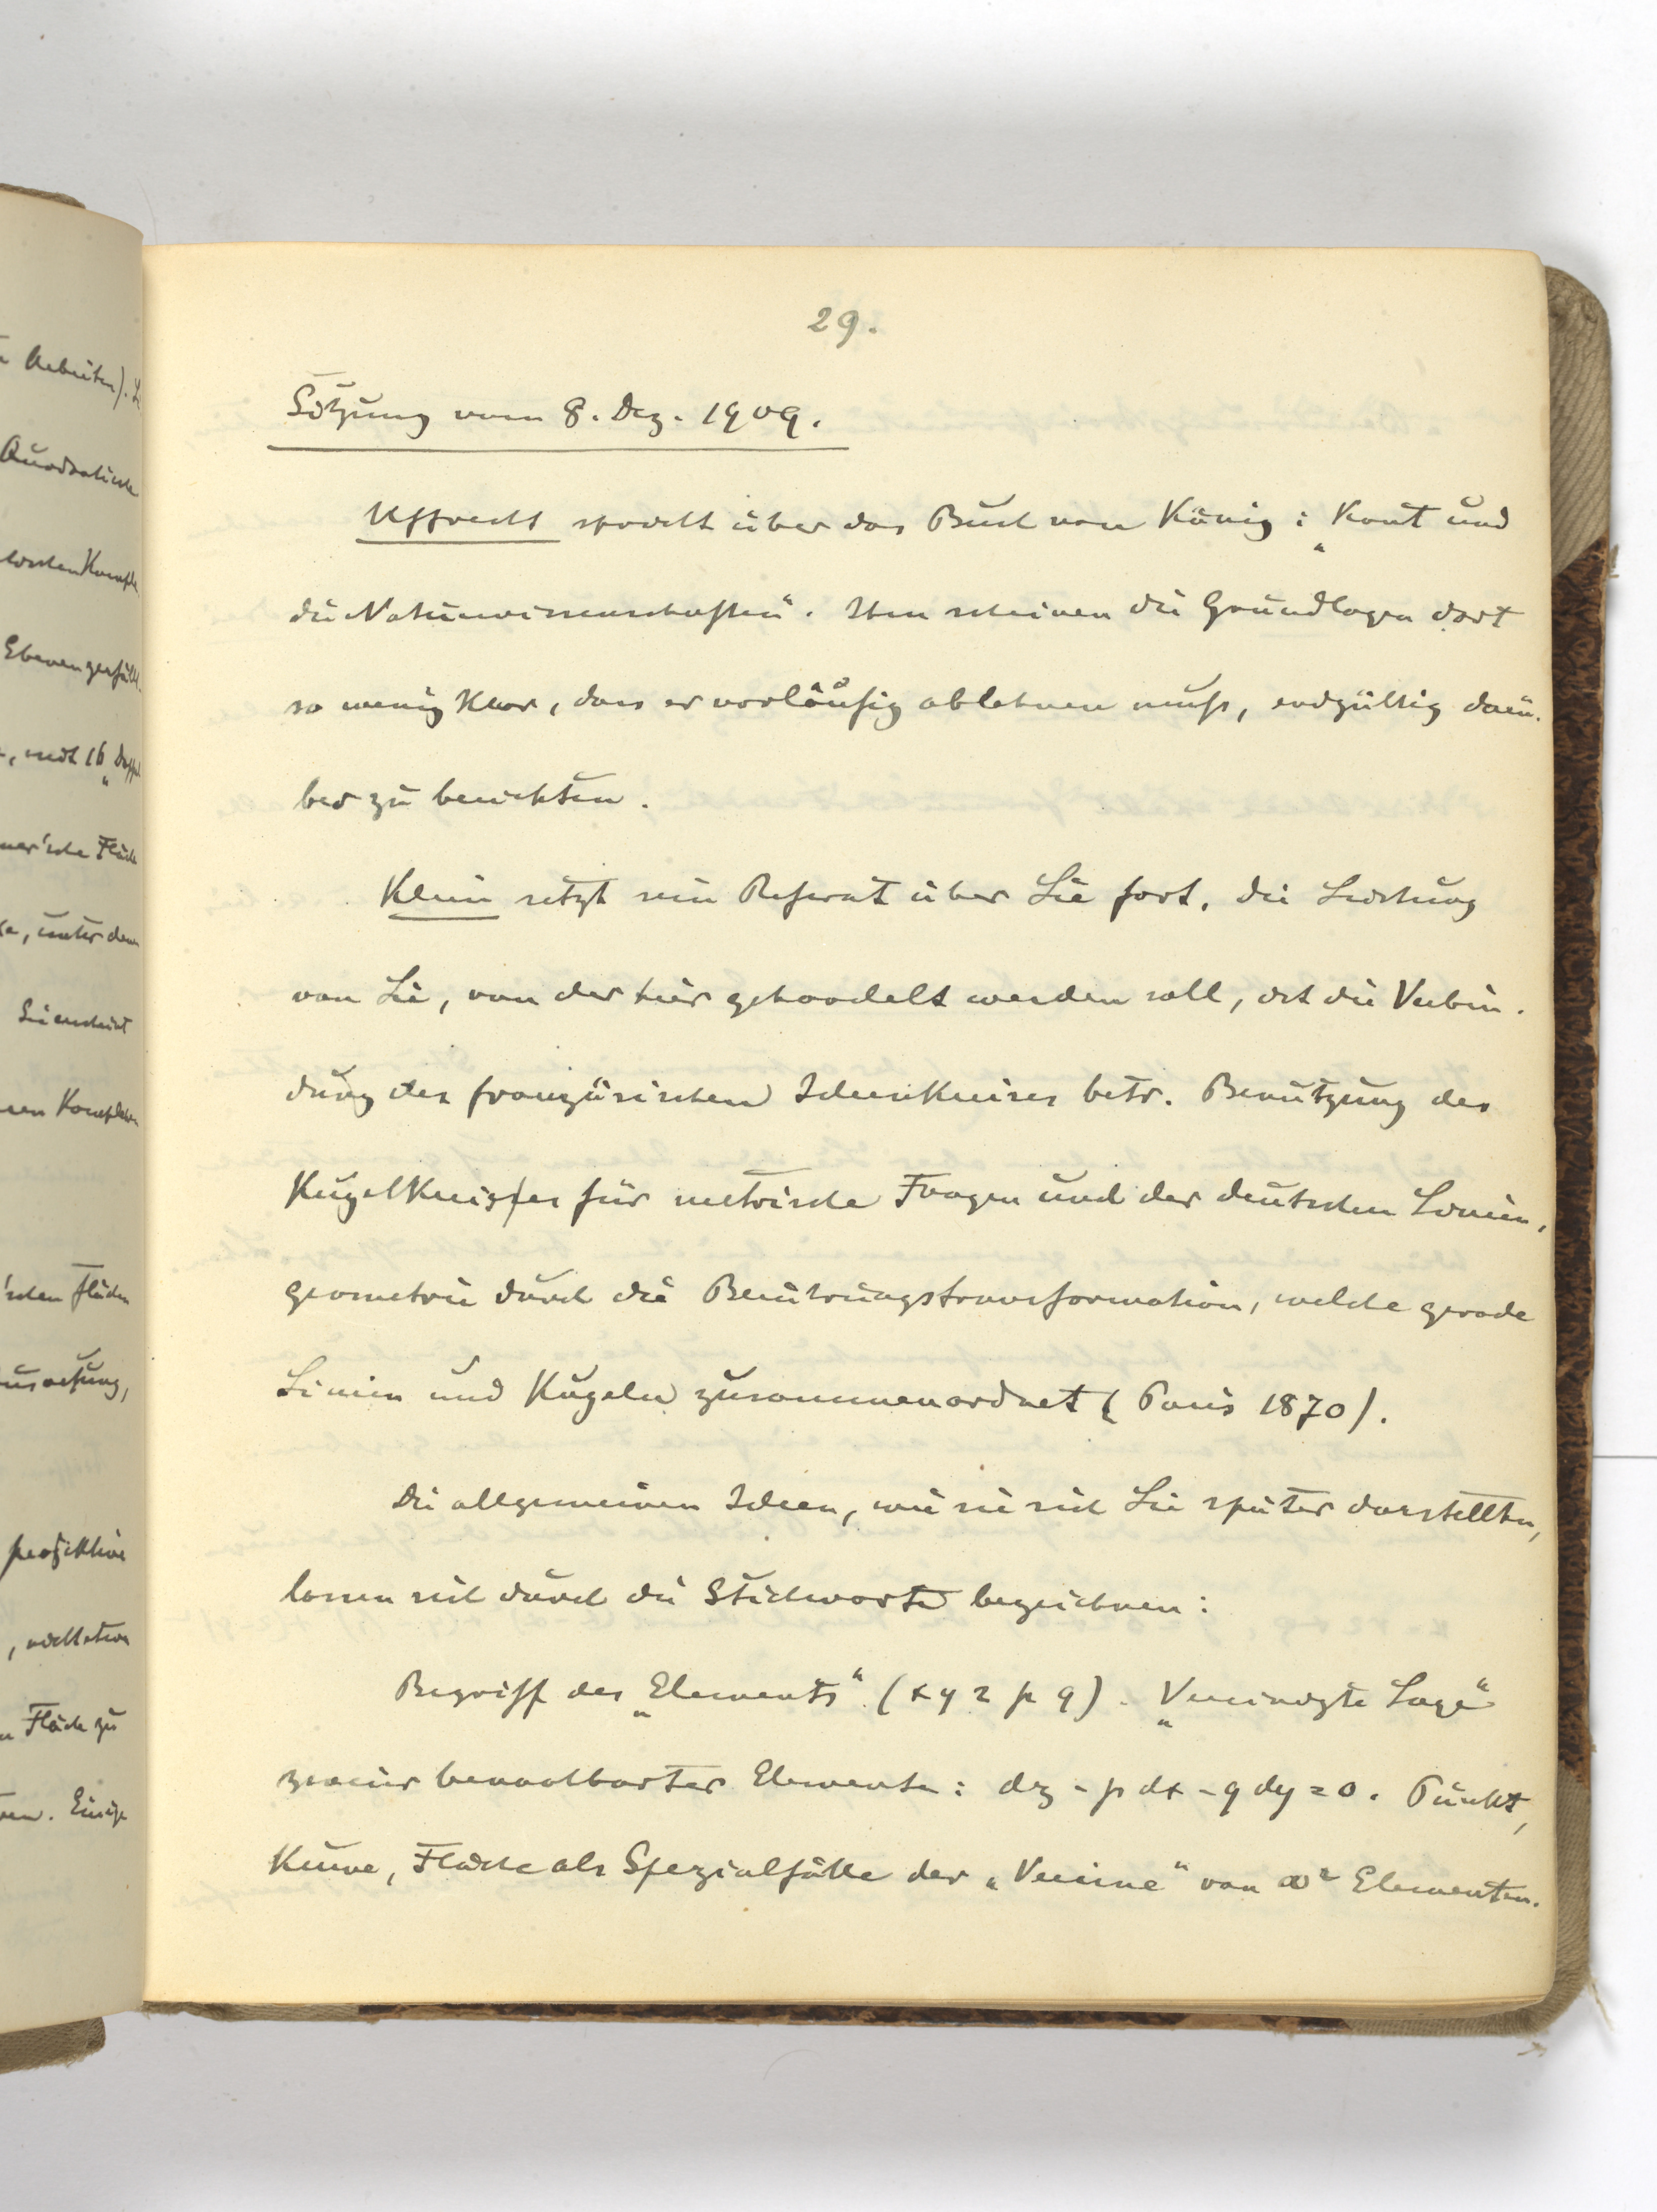 29.
Sitzung vom 8. Dez. 1909.
Uffrecht spricht über das Buch von König: „Kant und
die Naturwissenschaften“. Ihm scheinen die Grundlagen dort
so wenig klar, dass er vorläufig ablehnen muß, endgültig darü-
ber zu berichten.
Klein setzt sein Referat über Lie fort. Die Leistung
von Lie, von der hier gehandelt werden soll, ist die Verbin-
dung des französischen Ideenkreises betr. Benutzung des
Kugelkreises für metrische Fragen und der deutschen Linien-
geometrie durch die Berührungstransformation, welche gerade
Linien und Kugeln zusammenordnet (Paris 1870).
Die allgemeinen Ideen, wie sie sich Lie später darstellten,
lassen sich durch die Stichworte bezeichnen:
Begriff des „Elements“ (x y z p q). „Vereinigte Lage“
zweier benachbarter Elemente: dz - p dx - q dy = 0. Punkt,
Kurve, Fläche als Spezialfälle der „Vereine“ von ∞² Elementen.
Arbeiten).
Ebenen zerfällt.
, mit 16 „Doppel
mer'sche Fläche
, unter dem
Lie
Komplexen
'schen Flächen
projektive
Fläche zu